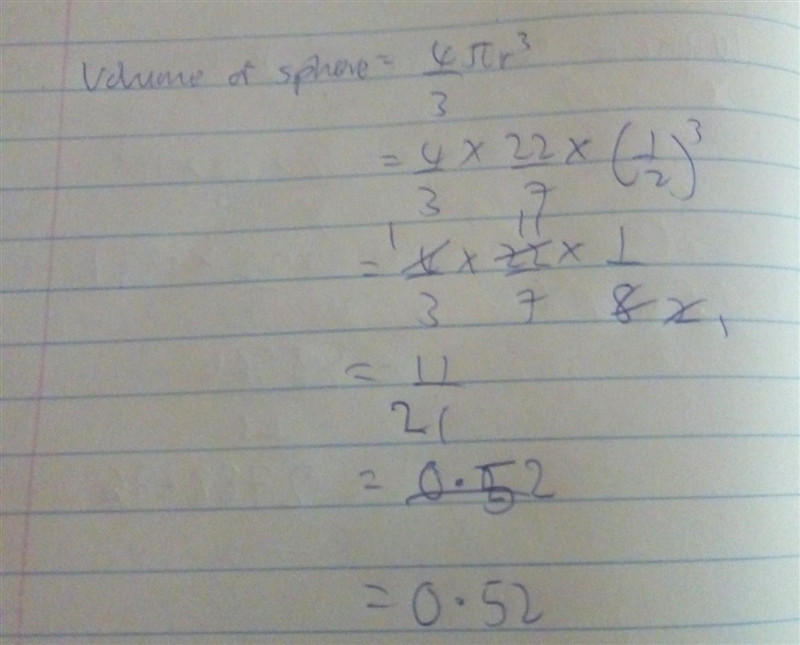 Volume of sphere = 4/3 πr³
= 4/3 × 22/7 × (1/2)³
= 4/3 × 22/7 × 1/8
= 11/21
= 0.52
= 0.52